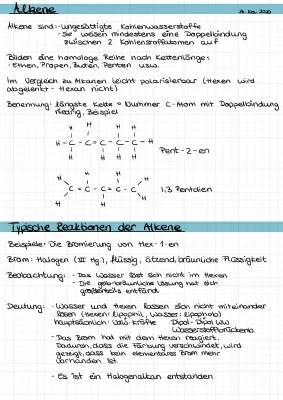 Alkene
Alkene sind: - ungesättigte Kohlenwasserstoffe
- Sie weisen mindestens eine Doppelbindung
zwischen 2 Kohlenstoffatomen auf
Bilden eine homologe Reihe nach Kettenlänge:
- Ethen, Propen, Buten, Penten usw.
Im Vergleich zu Alkanen leicht polarisierbar (Hexen wird
abgelenkt - Hexan nicht)
Benennung: längste Kette + Nummer C-Atom mit Doppelbindung
niedrig, Beispiel
H H
H - C - C = C - C - C - H
H H H H H
Pent-2-en
H H
C = C - C = C - C
H H H H
1,3 Pentdien
Typische Reaktionen der Alkene
Beispiele: Die Bromierung von Hex-1-en
Brom: Halogen (VII Hg.), flüssig, ätzend, bräunliche Flüssigkeit
Beobachtung: - Das Wasser löst sich nicht im Hexen
- Die gelb-bräunliche Lösung hat sich
größtenteils entfärbt
Deutung: - Wasser und Hexen lassen sich nicht miteinander
lösen (Hexen: lipophil, Wasser: lipophob)
hauptsächlich: VdW-Kräfte Dipol-Dipol WW
Wasserstoffbrückenb.
- Das Brom hat mit dem Hexen reagiert.
Dadurch, dass die Färbung verschwindet, wird
gezeigt, dass kein elementares Brom mehr
vorhanden ist.
- Es ist ein Halogenalkan entstanden